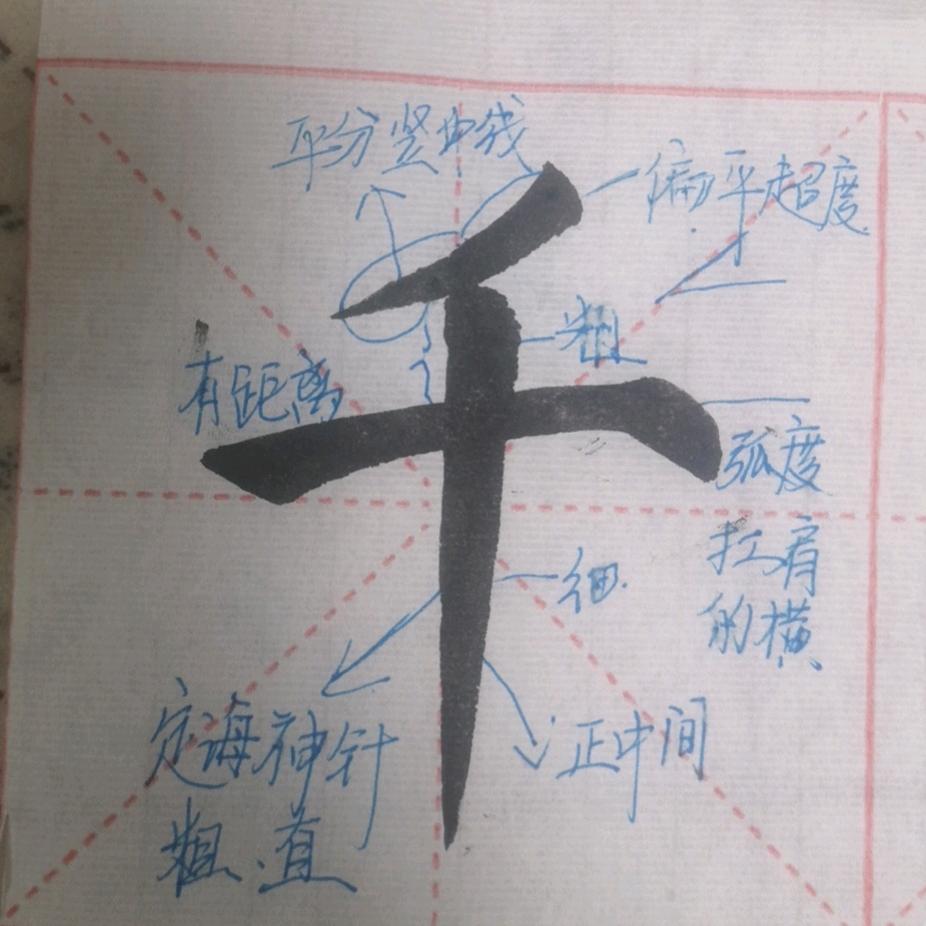 平分竖中线
偏平超度
千
粗
有距离
弧度
扛肩
的横
细
定海神针
正中间
粗、直